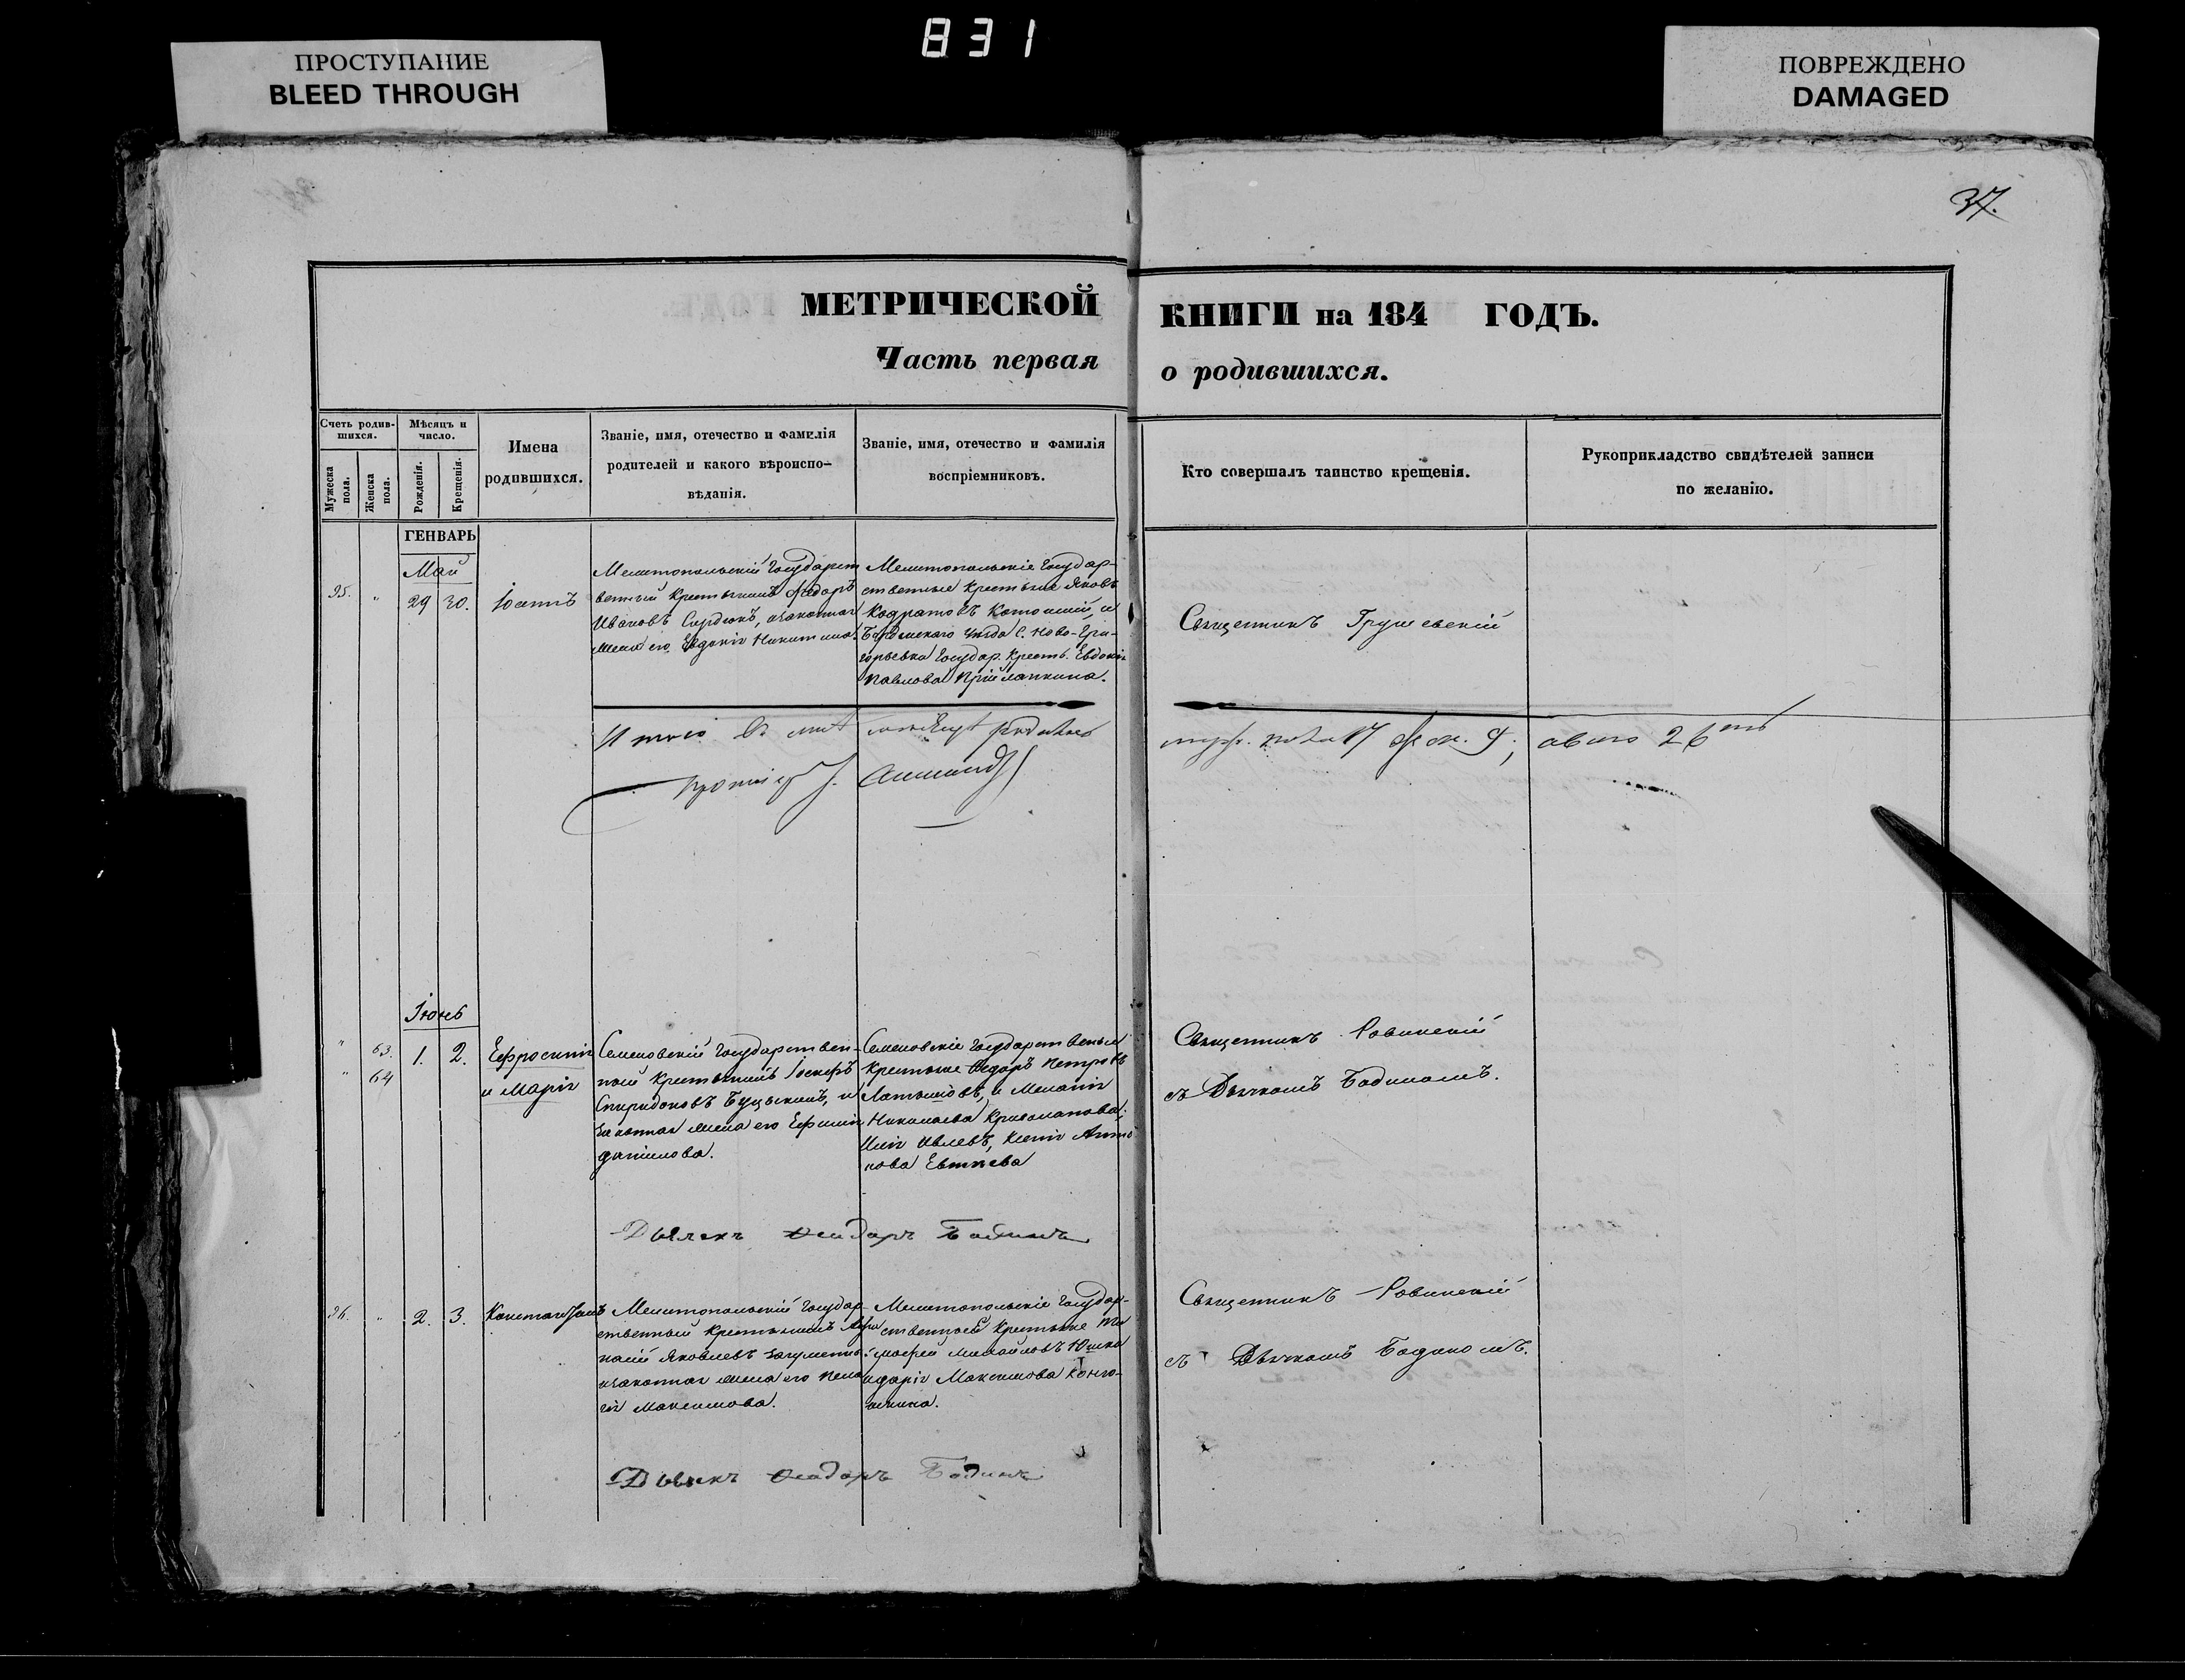 831
ПРОСТУПАНИЕ
BLEED THROUGH
ПОВРЕЖДЕНО
DAMAGED
37.
МЕТРИЧЕСКОЙ КНИГИ на 184 ГОДЪ.
Часть первая о родившихся.
Счетъ родив-
шихся.
Мужеска пола.
Женска пола.
Мѣсяцъ и
число.
Рожденія.
Крещенія.
Имена
родившихся.
Званіе, имя, отечество и фамилія
родителей и какого вѣроиспо-
вѣданія.
Званіе, имя, отечество и фамилія
воспріемниковъ.
Кто совершалъ таинство крещенія.
Рукоприкладство свидѣтелей записи
по желанію.
ГЕНВАРЬ
Май
35. " 29 30. Іоаннъ
Мелитопольскій Государст
венный Крестьянинъ Ѳедоръ
Ивановъ Сердюкъ, изаконная
жена его Евдокія Никитина.
Мелитопольскіе Государ-
ственные Крестьяне Яковъ
Кодратовъ и
Бердянскаго уѣзда С. Ново-Гри-
горьевки Государ. Крест. Евдокія
Павлова
Священникъ Грушевскій
Итого въ маѣ
муж. пола 17 жен. 9, 26
Іюнь
" 63. 1. 2. Ефросинія
" 64 и Марія
Семеновскій Государствен-
ный Крестьянинъ Іосифъ
Спиридоновъ Буцьскій, и
законная жена его Ефимія
Данилова.
Семеновскіе Государственые
Крестьяне Ѳедоръ Петровъ
Латышовъ, и Меланія
Николаева Криволапова;
Илія Ивлевъ, Ксенія Анто
нова Евтѣева
Священникъ Ровинскій
съ Дьячкомъ Бодиномъ.
Дьячекъ Ѳеодоръ Бодинъ
36. " 2. 3. Константинъ
Мелитопольскій Государ-
ственный Крестьянинъ
Яковлевъ
изаконная жена его Пела
гія Максимова.
Мелитопольскіе Государ-
ственные Крестьяне Ти
мофей Михайловъ Юшко
идарія Максимова
Священникъ Ровинскій
съ Дьячкомъ Бодиномъ.
Дьячекъ Ѳеодоръ Бодинъ